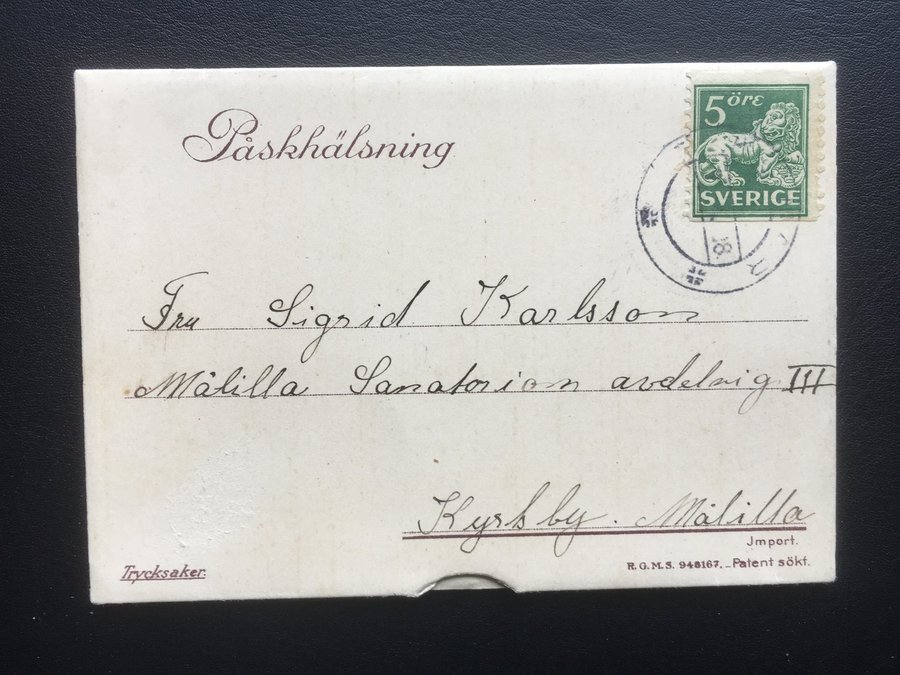 Påskhälsning
5 öre
SVERIGE
28
Fru Sigrid Karlsson
Målilla Sanatorion avdelnig III
Kyrkby. Målilla
Import.
R.G.M.S. 948167. Patent sökt.
Trycksaker.